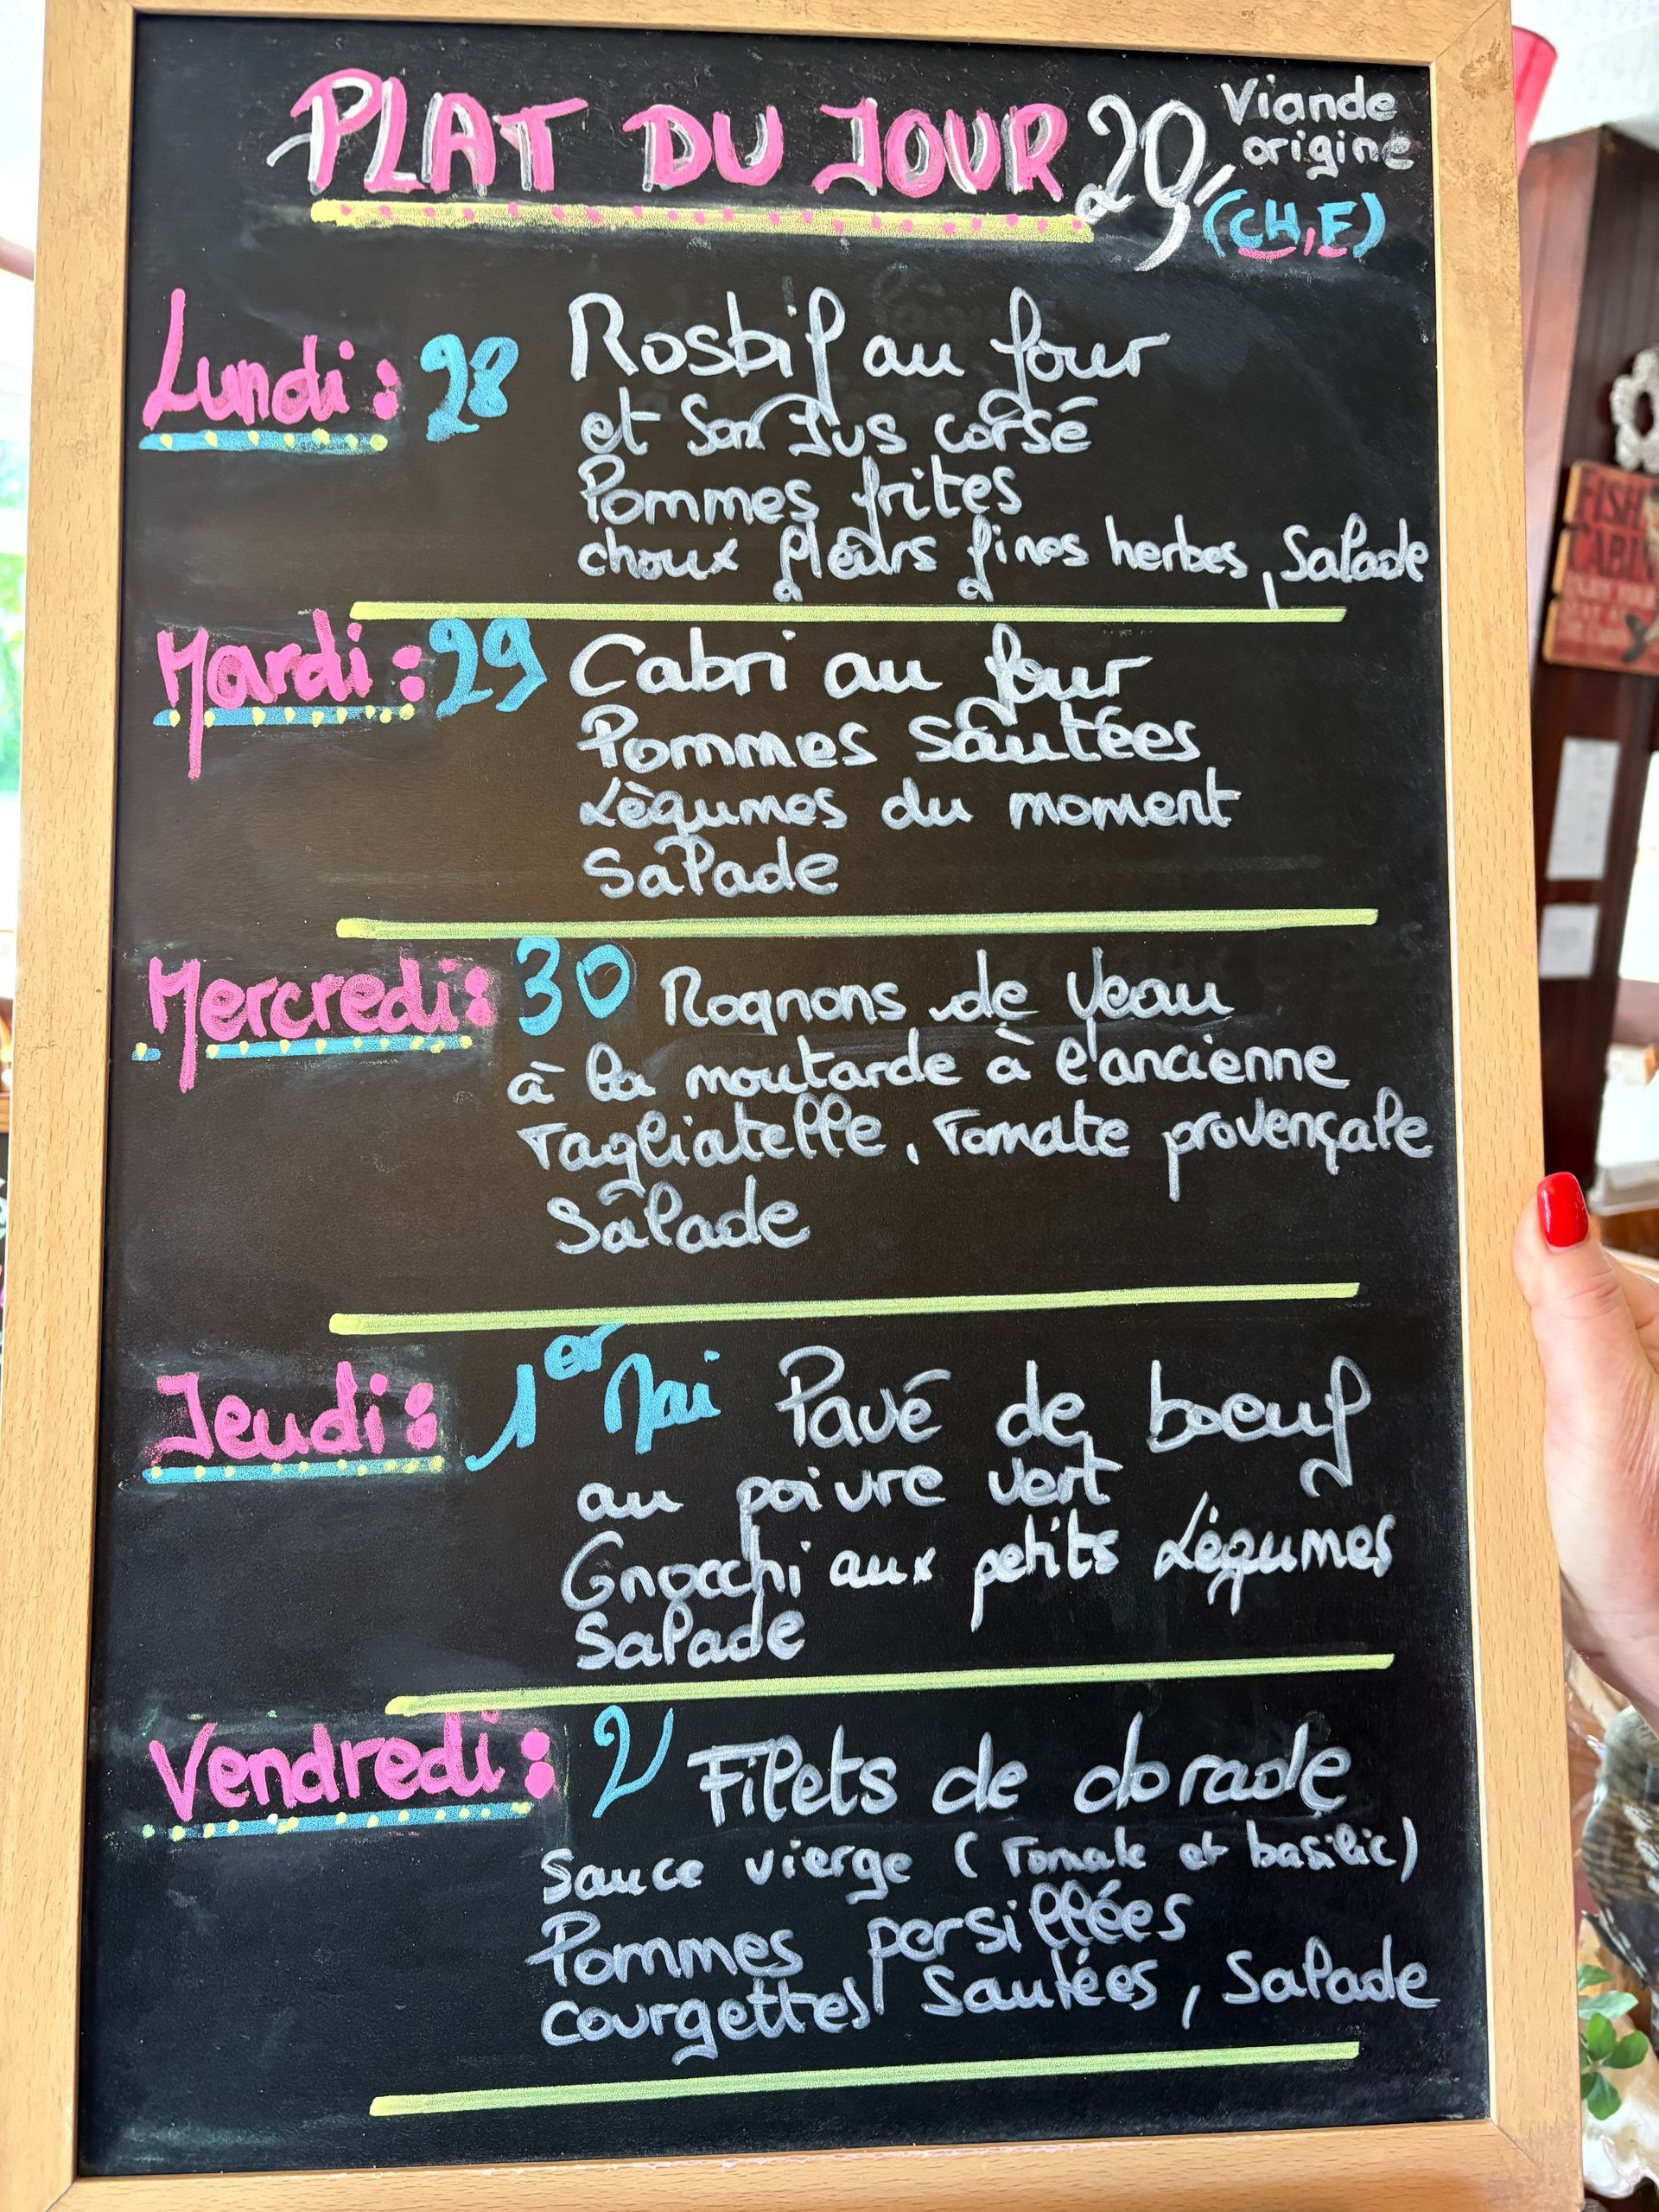 PLAT DU JOUR 20,-
Viande
origine
(CH, F)
Lundi : 28 Rosbif au four
et son Jus corsé
Pommes frites
choux fleurs fines herbes, Salade
Mardi : 29 Cabri au four
Pommes sautées
Lègumes du moment
Salade
Mercredi : 30 Rognons de Veau
à la moutarde à l'ancienne
Tagliatelle, Tomate provençale
Salade
Jeudi : 1er Mai Pavé de boeuf
au poivre vert
Gnocchi aux petits Légumes
Salade
Vendredi : 2 Filets de dorade
Sauce vierge (Tomate et basilic)
Pommes persillées
courgettes Sautées, Salade
FISH